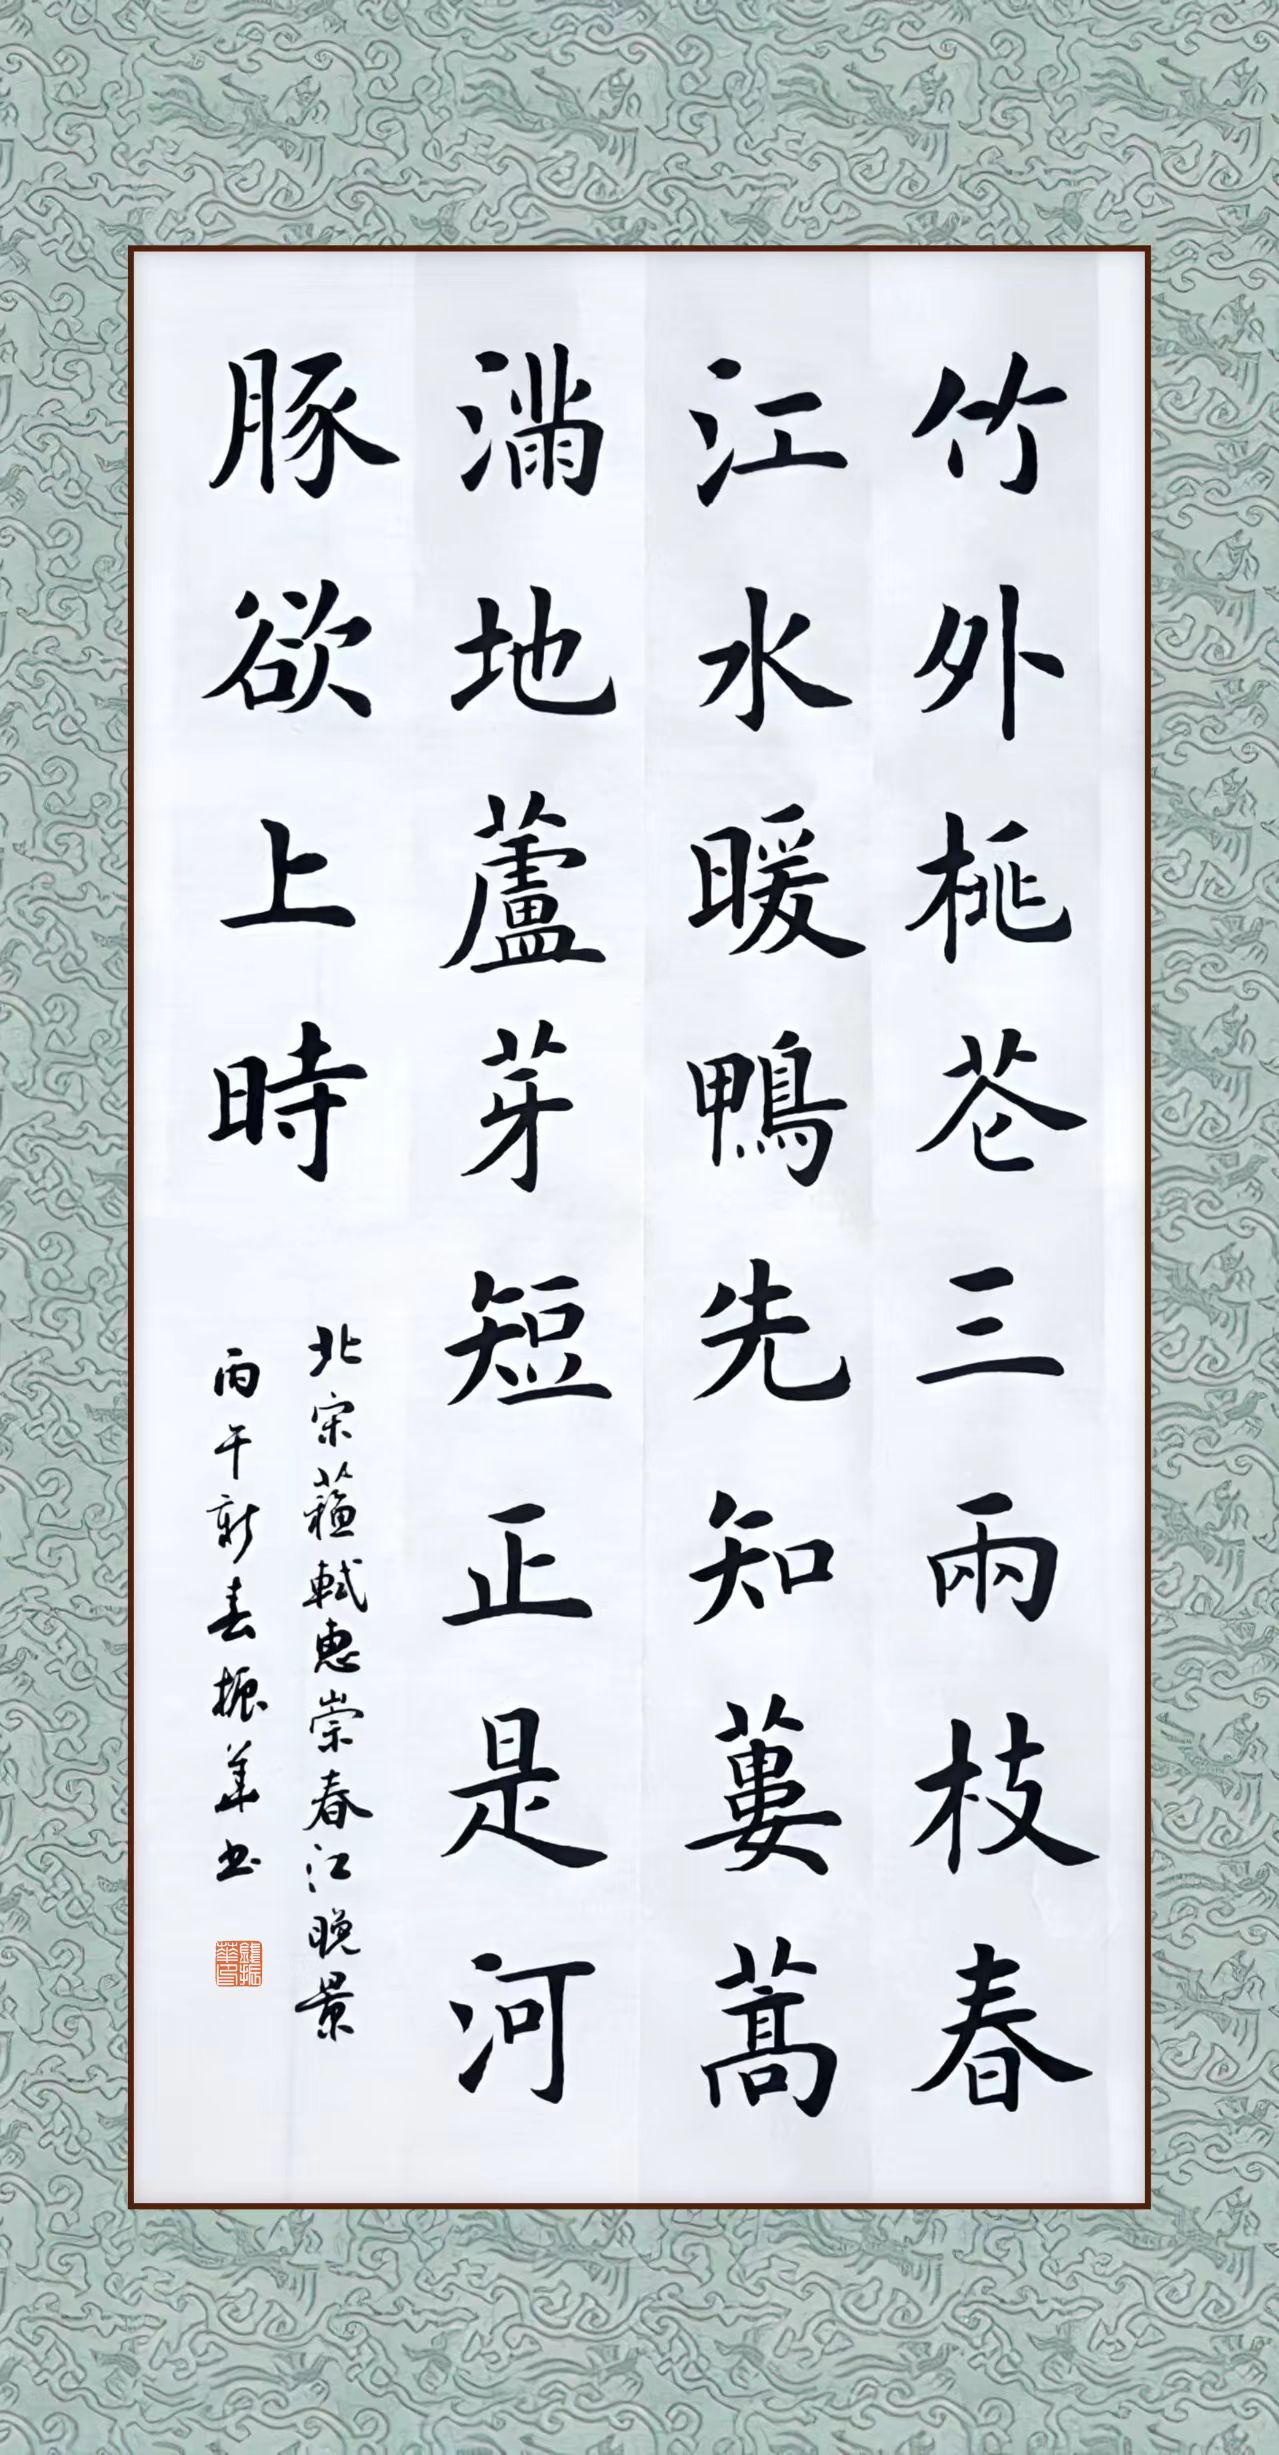 竹外桃花三兩枝春
江水暖鴨先知蔞蒿
滿地蘆芽短正是河
豚欲上時
北宋蘇軾惠崇春江晚景
丙午新春振華书